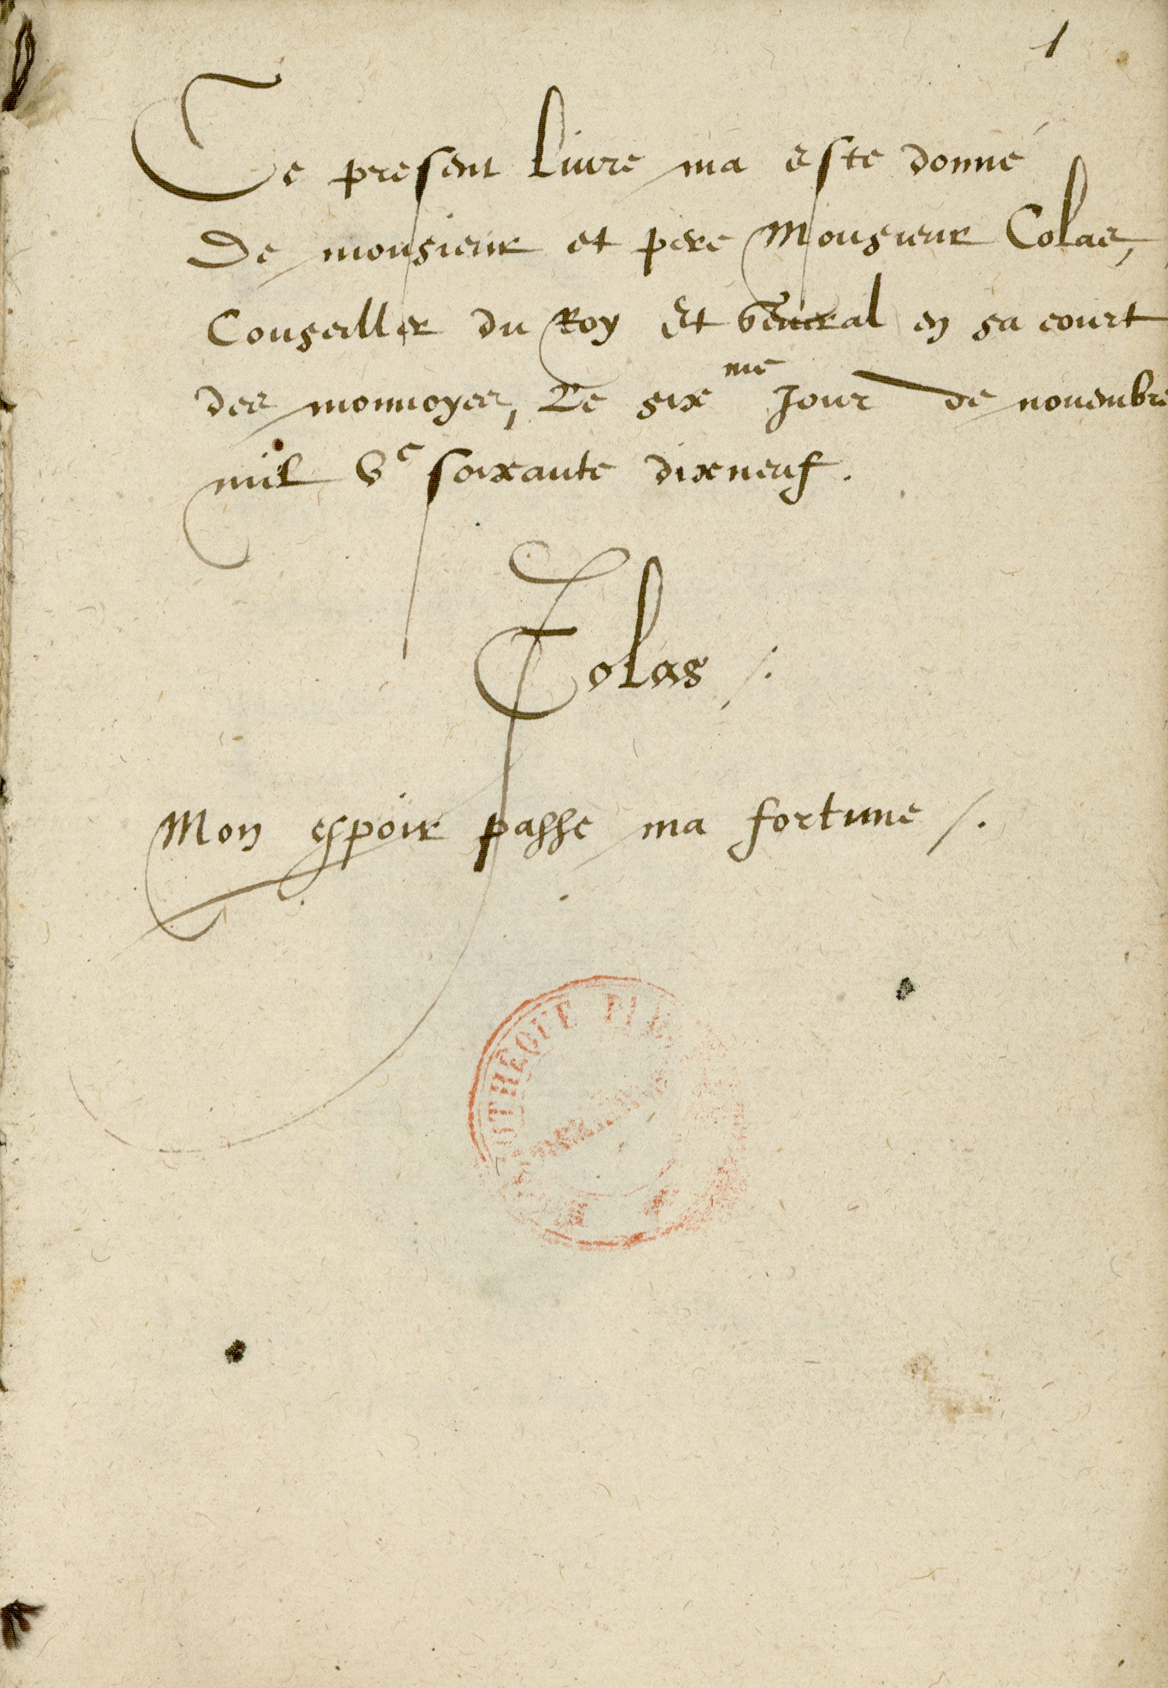 1
Ce present Liure ma este donné
De monsieur et pere Monsieur Colas,
Conseiller du Roy Et General en sa court
des monnoyes, Le six me Jour de nouembre
mil Vc soixante dixneuf.
Colas /.
Mon espoir passe ma fortune /.
OTHEQUE